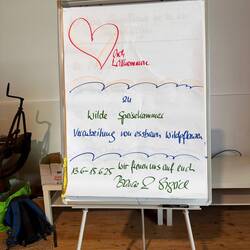 Herz
Willkommen
zu
Wilde Speisekammer
Verarbeitung von essbaren Wildpflanzen
13.6-15.6.25 wir freuen uns auf euch
&